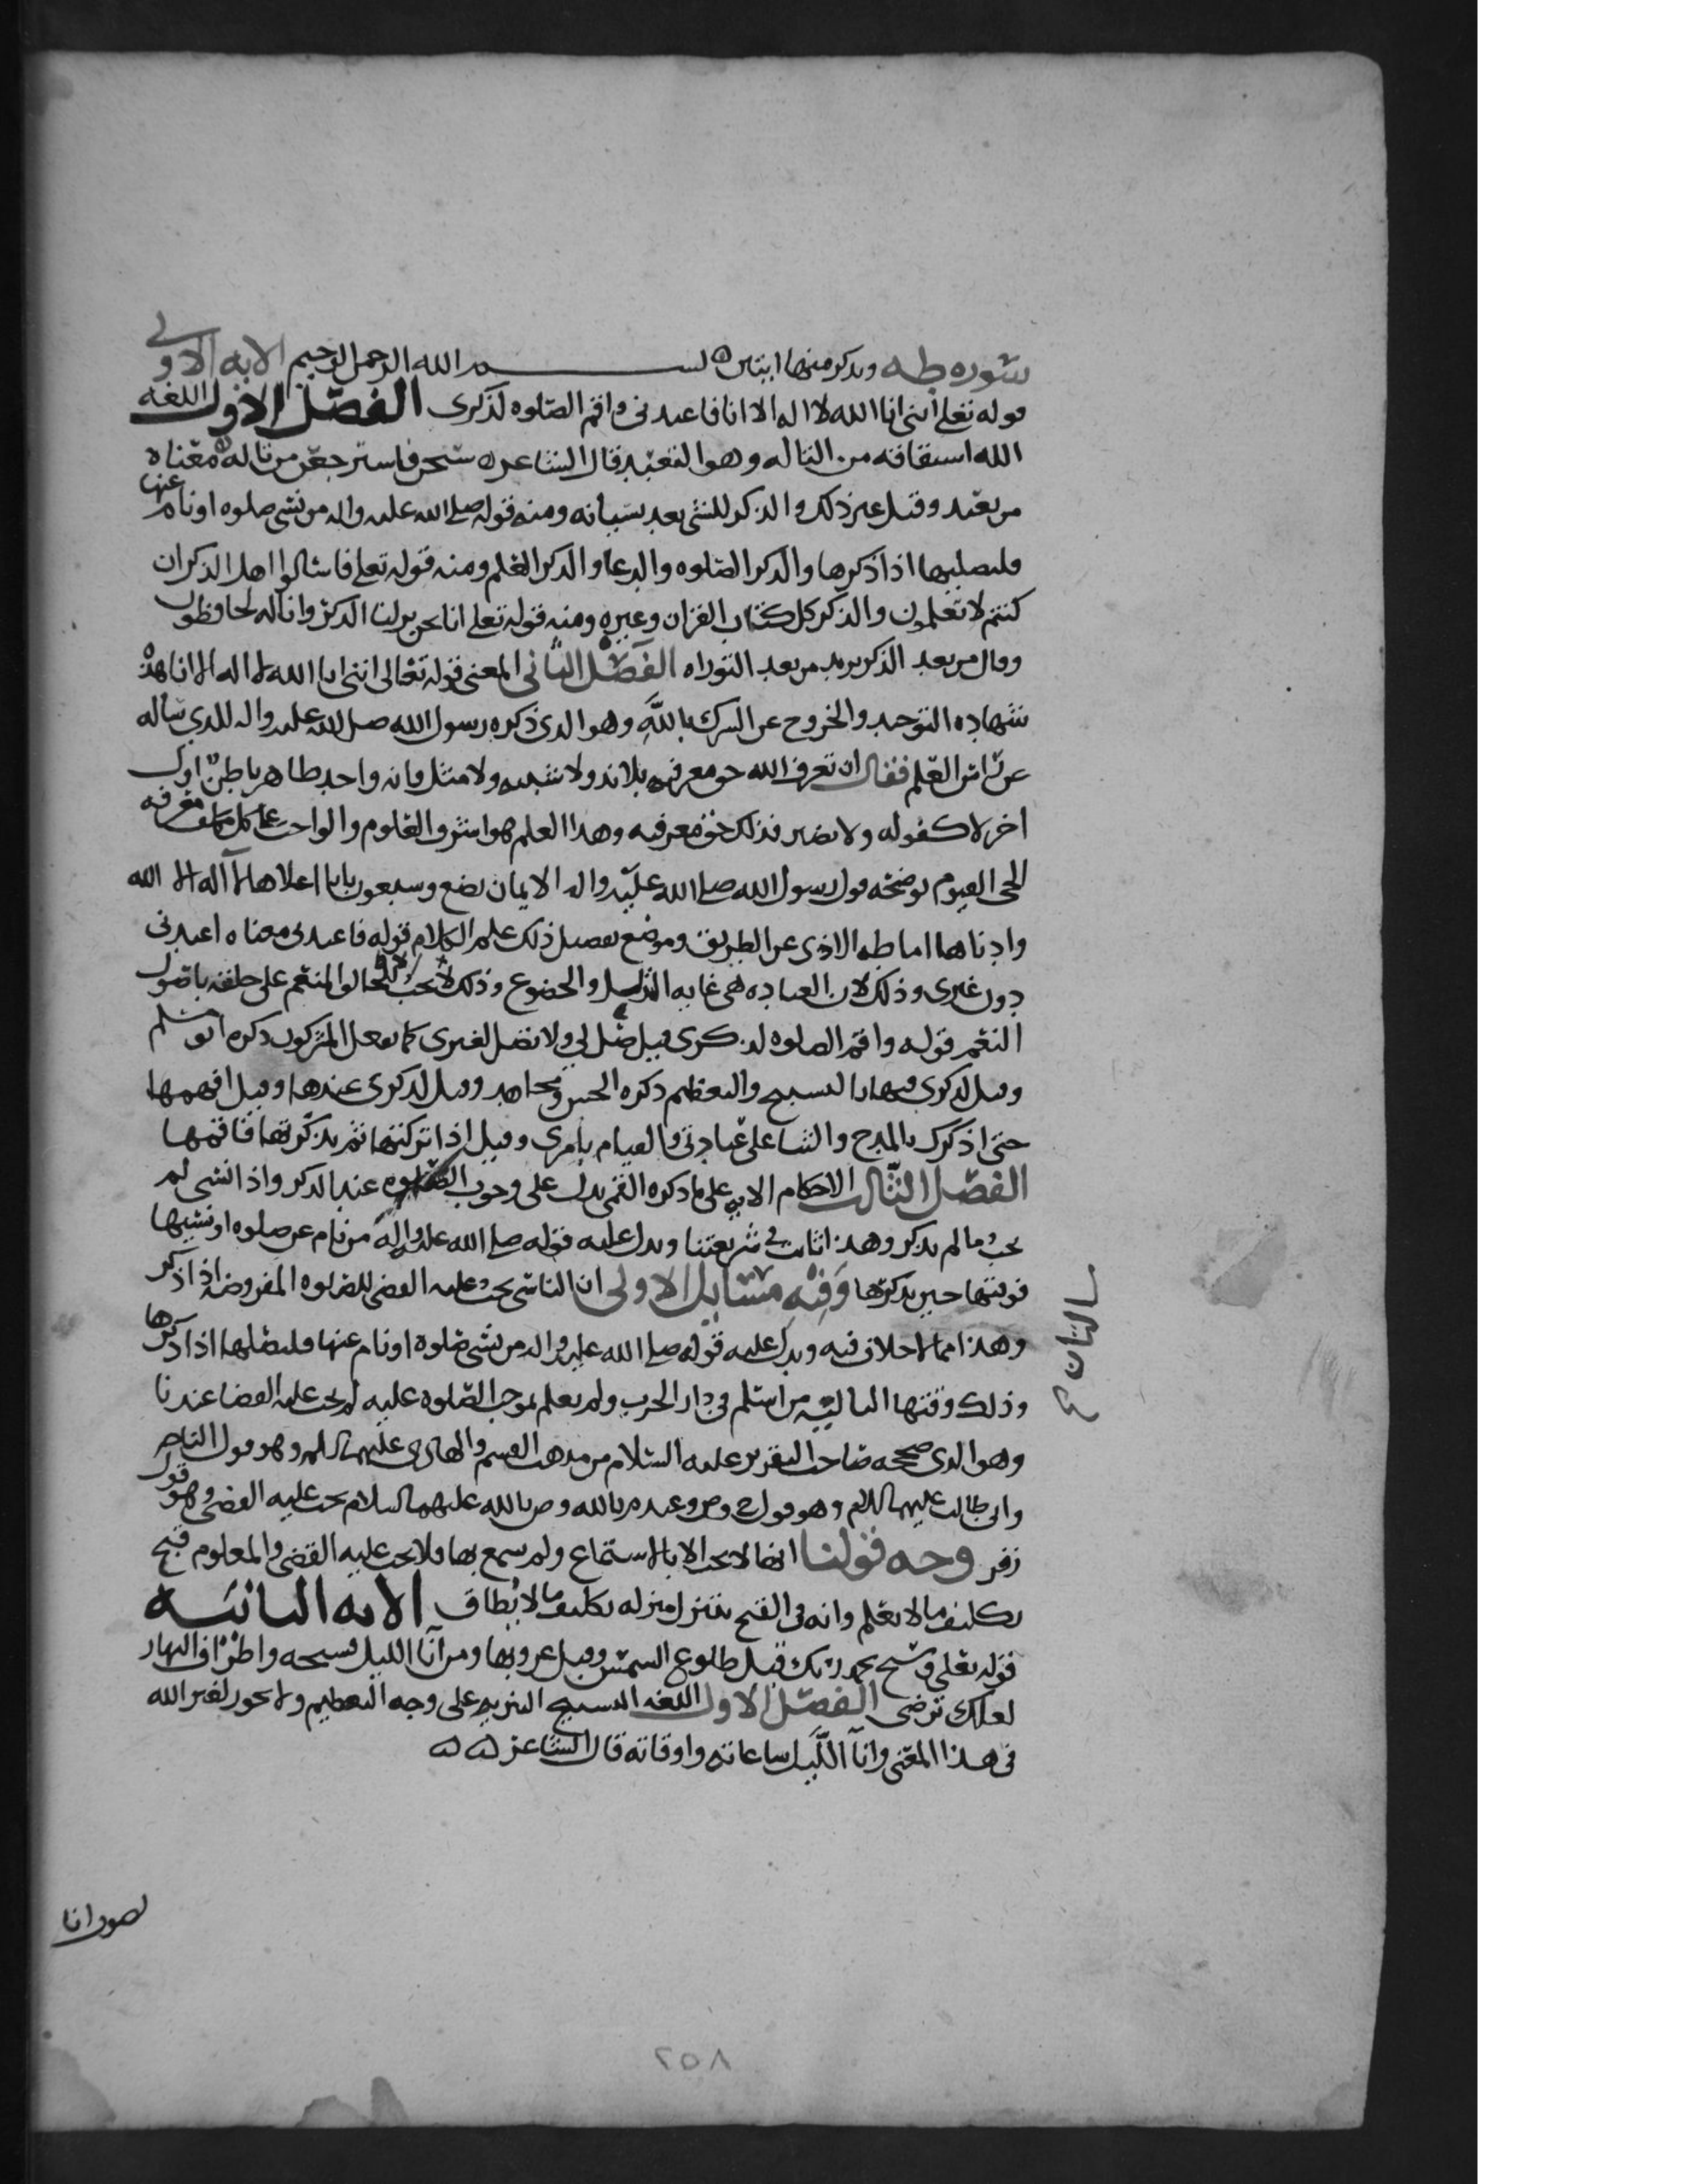 سوره طه ويذكر منها ايتين بسم الله الرحمن الرحيم الايه الاولى
قوله تعلى انني انا الله لا اله الا انا فاعبدني واقم الصلوه لذكري الفصل الاول اللغه
الله اشتقاقه من التاله وهو التعبد قال الشاعر سبحن واسترجعن من تالهي معناه
من تعبد وقيل غير ذلك والذكر للشي بعد نسيانه ومنه قوله صلى الله عليه واله من نسي صلوه او نام عنها
فليصليها اذا ذكرها والذكر الصلوه والدعا والذكر العلم ومنه قوله تعلى فاسالوا اهل الذكر ان
كنتم لا تعلمون والذكر كل كتاب القران وغيره ومنه قوله تعلى انا نحن نزلنا الذكر وانا له لحافظون
وقال من بعد الذكر يريد من بعد التوراه الفصل الثاني المعنى قوله تعالى انني انا الله لا اله الا انا هذه
شهاده التوحيد والخروج عن الشرك بالله وهو الذي ذكره رسول الله صلى الله عليه واله للذي ساله
عن راس العلم فقال ان تعرف الله حق معرفته بلا ند ولا شبيه ولا مثل وانه واحد ظاهر باطن اول
اخر لا كفو له ولا نضير فذلك حق معرفته وهذا العلم هو اشرف العلوم والواجب على كل مكلف معرفه
الحي القيوم يوضحه قول رسول الله صلى الله عليه واله الايمان بضع وسبعون بابا اعلاها لا اله الا الله
وادناها اماطه الاذى عن الطريق وموضع تفصيل ذلك علم الكلام قوله فاعبدني معناه اعبدني
دون غيري وذلك لان العباده هي غايه التذلل والخضوع وذلك لا يجب الا للخالق المنعم على خلقه باصول
النعم قوله واقم الصلوه لذكري قيل صل لي ولا تصل لغيري كما يفعل المشركون ذكره ابو مسلم
وقيل لذكري فيها بالتسبيح والتعظيم ذكره الحسن ومجاهد وقيل لذكري عندها وقيل اقمها
حتى اذكرك بالمدح والثنا على عبادتي والقيام بامري وقيل اذا تركتها ثم تذكرتها فاقمها
الفصل الثالث الاحكام الايه على ما ذكره القمي تدل على وجوب الصلوه عند الذكر واذا نسي لم
يجب ما لم يذكر وهذا ثابت في شريعتنا ويدل عليه قوله صلى الله عليه واله من نام عن صلوه او نسيها
فوقتها حين يذكرها وفيه مسايل الاولى ان الناسي يجب عليه القضى للصلوه المفروضه اذا ذكر
وهذا مما لا خلاف فيه ويدل عليه قوله صلى الله عليه واله من نسي صلوه او نام عنها فليصلها اذا ذكرها
وذلك وقتها الثانيه من اسلم في دار الحرب ولم يعلم بوجوب الصلوه عليه لم يجب عليه القضا عندنا
وهو الذي صححه صاحب التقرير عليه السلام من مذهب القسم والهادي عليهما السلم وهو قول الناصر
وابي طالب عليهما السلام وهو قول ح وص وعند م بالله وص بالله عليهما السلام يجب عليه القضى وهو قول
زفر وجه قولنا انها لا تجب الا بالاستماع ولم يسمع بها فلا يجب عليه القضى والمعلوم قبح
تكليف ما لا يعلم وانه في القبح يتنزل منزله تكليف ما لا يطاق الايه الثانيه
قوله تعلى وسبح بحمد ربك قبل طلوع الشمس وقبل غروبها ومن آنا الليل فسبحه واطراف النهار
لعلك ترضى الفصل الاول اللغه التسبيح التنزيه على وجه التعظيم ولا يجوز لغير الله
في هذا المعنى وانآ الليل ساعاته واوقاته قال الشاعر
٢٥٨